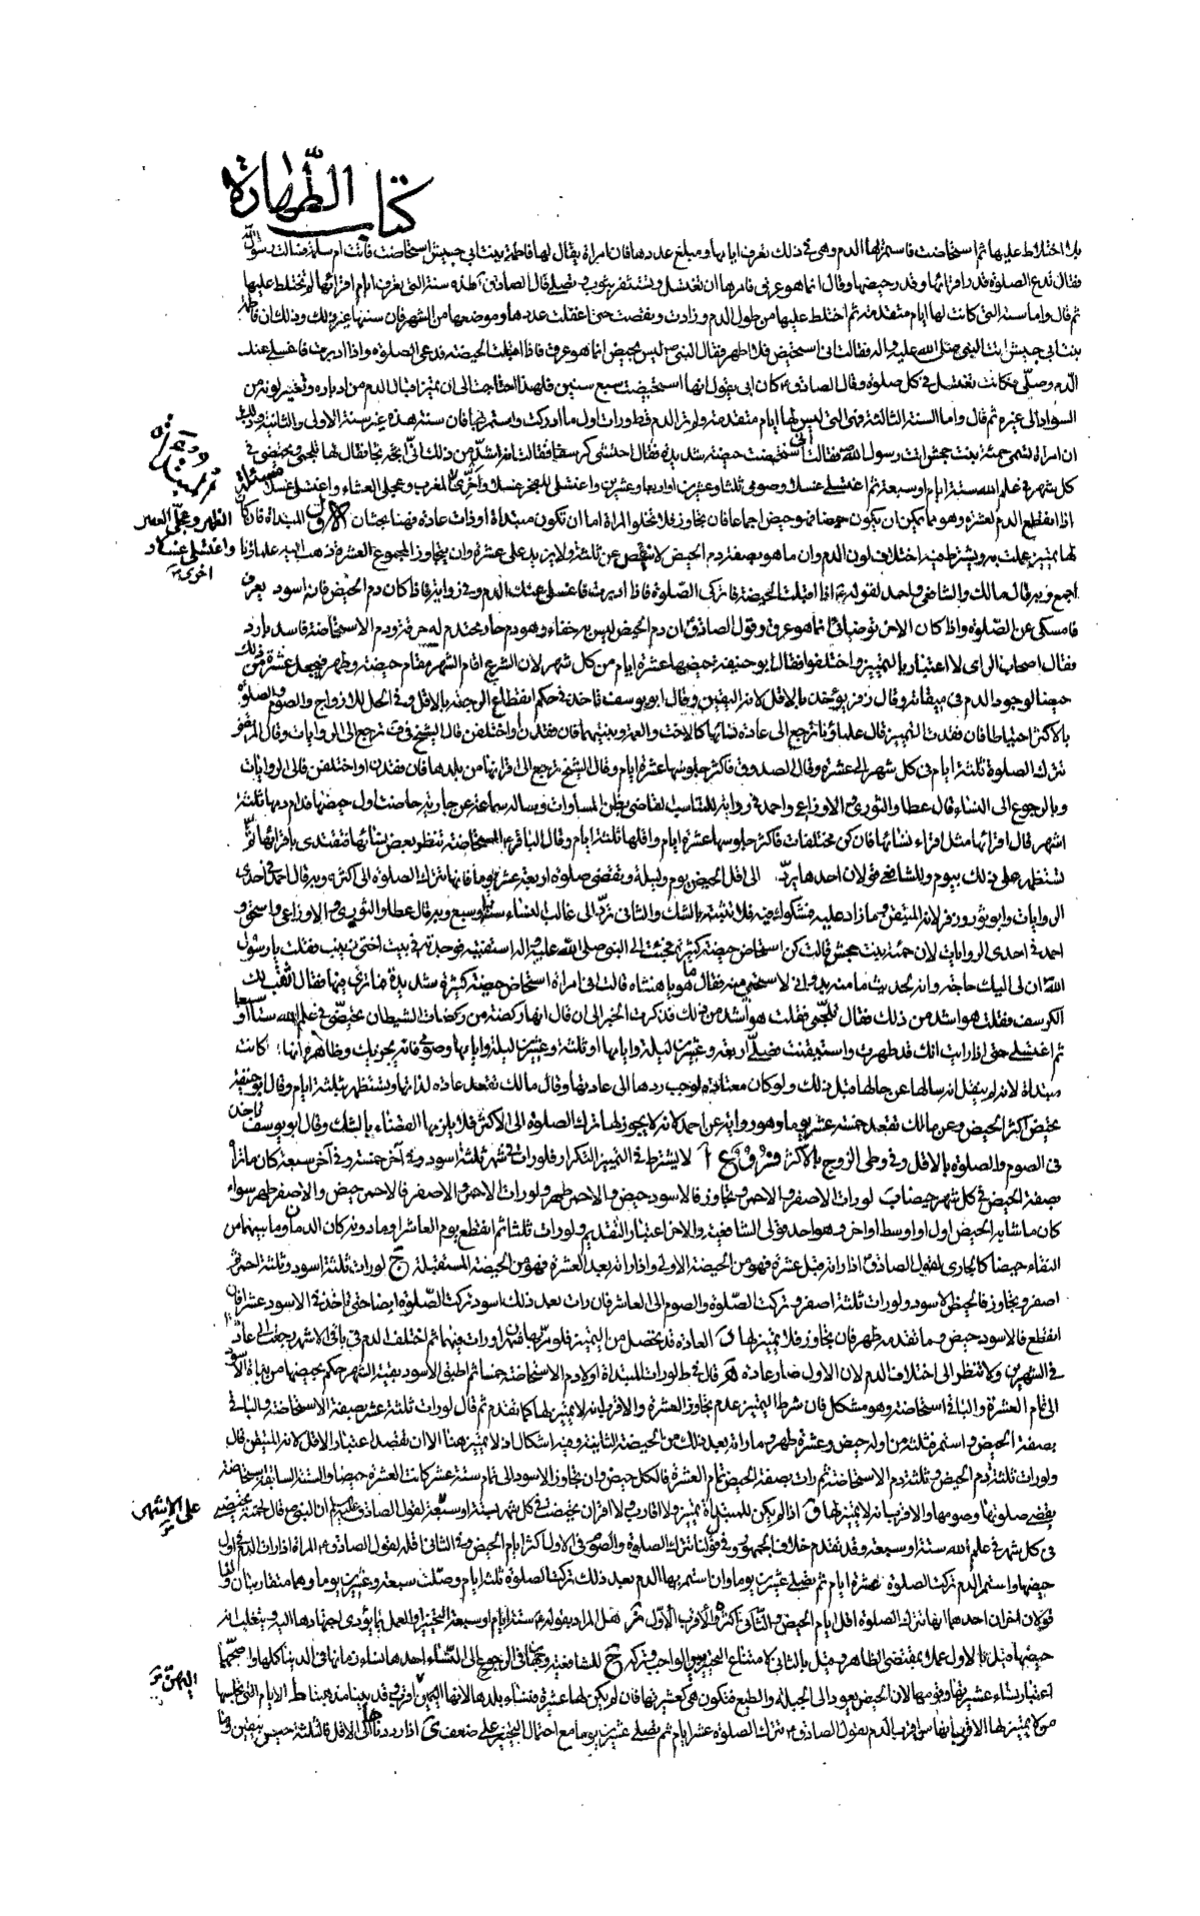 كتاب الطهارة
اختلاط عليها ثم استحاضت فاستمر بها الدم وهي في ذلك تعرف ايامها ومبلغ عددها فان امراة يقال لها فاطمة بنت ابي حبيش استحاضت فاتت ام سلمة فسالت رسول الله
فقال تدع الصلوة قدر اقرائها وقدر حيضها وقال انما هو عرق فامرها ان تغتسل وتستثفر بثوب وتصلي قال الصادق هذه سنة التي تعرف ايام اقرائها لم تختلط عليها
ثم قال واما سنة التي كانت لها ايام متقدمة ثم اختلط عليها من طول الدم وزادت ونقصت حتى اغفلت عددها وموضعها من الشهر فان سنتها غير ذلك وذلك ان فاطمة
بنت ابي حبيش اتت النبي صلى الله عليه واله فقالت اني استحيض فلا اطهر فقال النبي ص ليس بحيض انما هو عرق فاذا اقبلت الحيضة فدعي الصلوة واذا ادبرت فاغسلي عنك
الدم وصلي وكانت تغتسل في كل صلوة وقال الصادق ع كان ابي يقول انها استحيضت سبع سنين فلهذا احتاجت الى ان تميز اقبال الدم من ادباره وتغير لونه من
السواد الى غيره ثم قال واما السنة الثالثة فهي التي ليس لها ايام متقدمة ولم تر الدم قط ورات اول ما ادركت واستمر بها فان سنة هذه غير سنة الاولى والثانية وذلك
ان امراة تسمى حمنة بنت جحش اتت رسول الله ص فقالت اني استحضت حيضة شديدة فقال احتشي كرسفا فقالت انه اشد من ذلك اني اثجه ثجا فقال لها تلجمي وتحيضي في
كل شهر في علم الله ستة ايام او سبعة ثم اغتسلي غسلا وصومي ثلثا وعشرين او اربعا وعشرين واغتسلي للفجر غسلا واخري المغرب وعجلي العشاء واغتسلي غسلا
اذا انقطع الدم لعشرة وهو مما يمكن ان يكون حيضا فهو حيض اجماعا فان تجاوز فلا تخلو المراة اما ان تكون مبتداة او ذات عادة فهنا بحثان الاول المبتداة فان كان
لها تمييز عملت به ويشترط فيه اختلاف لون الدم وان ما هو بصفة دم الحيض لا ينقص عن ثلثة ولا يزيد على عشرة وان يتجاوز المجموع العشرة ذهب اليه علماؤنا
اجمع وبه قال مالك والشافعي واحمد لقوله ع اذا اقبلت الحيضة فاتركي الصلوة فاذا ادبرت فاغسلي عنك الدم وفي رواية فاذا كان دم الحيض فانه اسود يعرف
فامسكي عن الصلوة واذا كان الاخر توضائي انما هو عرق وقول الصادق ان دم الحيض ليس به خفاء وهو دم حار محتدم له حرقة ودم الاستحاضة فاسد بارد
وقال اصحاب الراى لا اعتبار بالتمييز واختلفوا فقال ابو حنيفة حيضها عشرة ايام من كل شهر لان الشرع اقام الشهر مقام حيضة وطهر فيجعل عشرة من ذلك
حيضا لوجود الدم في ميقاته وقال زفر يؤخذ بالاقل لانه اليقين وقال ابو يوسف تاخذ في حكم انقطاع الرجعة بالاقل وفي الحل للازواج والصوم والصلوة
بالاكثر احتياطا فان فقدت التمييز قال علماؤنا ترجع الى عادة نسائها كالاخت والعمة وبنتيهما فان فقدن او اختلفن قال الشيخ في ف ترجع الى الروايات وقال المرتضى
تترك الصلوة ثلثة ايام في كل شهر الى عشرة وقال الصدوق فاكثر جلوسها عشرة ايام وقال الشيخ ترجع الى اقرانها من بلدها فان فقدن او اختلفن فالى الروايات
وبالرجوع الى النساء قال عطا والثوري والاوزاعي واحمد في رواية للتناسب القاضي بظن المساوات وساله سماعة عن جارية حاضت اول حيضها فدام دمها ثلثة
اشهر قال اقراؤها مثل اقراء نسائها فان كن مختلفات فاكثر جلوسها عشرة ايام واقلها ثلثة ايام وقال الباقر ع المستحاضة تنظر بعض نسائها فتقتدي باقرائها ثم
تستظهر على ذلك بيوم وللشافعي قولان احدهما يرد الى اقل الحيض يوم وليلة وتقضي صلوة اربعة عشر يوما فانها تترك الصلوة الى اكثره وبه قال احمد في احدى
الروايات وابو ثور وزفر لانه المتيقن وما زاد عليه مشكوك فيه فلا تثبته بالشك والثاني ترد الى غالب النساء ست او سبع وبه قال عطا والثوري والاوزاعي واسحق و
احمد في احدى الروايات لان حمنة بنت جحش قالت كنت استحاض حيضة كثيرة فجئت الى النبي صلى الله عليه واله استفتيه فوجدته في بيت اختي زينب فقلت يا رسول
الله ان لي اليك حاجة وانه لحديث ما منه بد واني لاستحيي منه فقال ما هو يا هنتاه قالت اني امراة استحاض حيضة كثيرة شديدة فما ترى فيها فقال انعت لك
الكرسف فقلت هو اشد من ذلك فقال تلجمي فقلت هو اشد من ذلك فذكرت الخبر الى ان قال انها ركضة من ركضات الشيطان تحيضي في علم الله ستا او سبعا
ثم اغتسلي حتى اذا رايت انك قد طهرت واستيقنت فصلي اربعة وعشرين ليلة وايامها او ثلثة وعشرين ليلة وايامها وصومي فانه يجزيك وظاهره انها كانت
مبتداة لانه لم ينقل انه سالها عن حالها قبل ذلك ولو كان معتادة لوجب ردها الى عادتها وقال مالك تقعد عادة لداتها وتستظهر بثلثة ايام وقال ابو حنيفة
تحيض اكثر الحيض وعن مالك تقعد خمسة عشر يوما وهو رواية عن احمد لانه لا يجوز لها ترك الصلوة الى الاكثر فلا يلزمها القضاء بالشك وقال ابو يوسف تاخذ
في الصوم والصلوة بالاقل وفي وطى الزوج بالاكثر فروع ا لا يشترط في التمييز التكرار فلو رات في شهر ثلثة اسود وفي آخر خمسة وفي آخر سبعة كان ما تراه
بصفة الحيض في كل شهر حيضا ب لو رات الاصفر والاحمر وتجاوز فالاسود حيض والاحمر طهر ولو رات الاحمر والاصفر فالاحمر حيض والاصفر طهر سواء
كان ما شابه الحيض اول او اوسط او اخر وهو احد قولي الشافعية والاخر اعتبار التقديم ولو رات ثلثا ثم انقطع يوم العاشر او ما دونه كان الدمان وما بينهما من
النقاء حيضا كالجاري لقول الصادق اذا راته قبل عشرة فهو من الحيضة الاولى واذا راته بعد العشرة فهو من الحيضة المستقبلة ج لو رات ثلثة اسود وثلثة احمر ثم
اصفر وتجاوز فالحيض الاسود ولو رات ثلثة اصفر وتركت الصلوة والصوم الى العاشر فان رات بعد ذلك اسود تركت الصلوة ايضا حتى تاخذ في الاسود عشرا فان
انقطع فالاسود حيض وما تقدمه طهر فان تجاوز فلا تمييز لها د العادة قد تحصل من التمييز فلو مر بها شهران ورات فيهما ثم اختلف الدم في باقي الاشهر رجعت الى عادتها
في الشهرين ولا تنظر الى اختلاف الدم لان الاول صار عادة ه قال في ط لو رات المبتداة اولا دم الاستحاضة خمسا ثم اطبق الاسود بقية الشهر حكم بحيضها من بداة الاسود
الى تمام العشرة والباقي استحاضة وهو مشكل فان شرط التمييز عدم تجاوز العشرة والاقرب انه لا تمييز لها كما تقدم ثم قال لو رات ثلثة عشر بصفة الاستحاضة والباقي
بصفة الحيض واستمر فثلثة من اوله حيض وعشرة طهر وما راته بعد ذلك من الحيضة الثانية وفيه اشكال اذ لا تمييز هنا الا ان تقصد اعتبار الاقل لانه المتيقن قال
ولو رات ثلثة دم الحيض وثلثة دم الاستحاضة ثم رات بصفة الحيض تمام العشرة فالكل حيض وان تجاوز الاسود الى تمام ستة عشر كانت العشرة حيضا والستة السابقة استحاضة
تقضي صلوتها وصومها والاقرب انه لا تمييز لها و اذا لم يكن للمبتداة تمييز ولا اقارب ولا اقران تحيضت في كل شهر بستة او سبعة لقول الصادق عليه السلام ان النبي ص قال لحمنة تحيضي
في كل شهر في علم الله ستة او سبعة وقد تقدم خلاف الجمهور وفي قول لنا تترك الصلوة والصوم في الاول اكثر ايام الحيض وفي الثاني اقله لقول الصادق ع المراة اذا رات الدم في اول
حيضها واستمر الدم تركت الصلوة عشرة ايام ثم تصلي عشرين يوما وان استمر بها الدم بعد ذلك تركت الصلوة ثلثة ايام وصلت سبعة وعشرين يوما وهما متقاربتان ولنا
قولان اخران احدهما انها تترك الصلوة اقل ايام الحيض والثاني اكثره والاقرب الاول ز هل المراد بقوله ع ستة ايام او سبعة التخيير او العمل بما يؤدي اجتهادها اليه ويغلب انه
حيضها قيل بالاول عملا بمقتضى الظاهر وقيل بالثاني لامتناع التخيير بين الواجب وتركه ح للشافعية وجهان في الرجوع الى النساء احدهما نساء زمانها في الدنيا كلها واصحهما
اعتبار نساء عشيرتها وقومها لان الحيض يعود الى الجبلة والطبع فتكون هي كعشيرتها فان لم يكن لها عشيرة فنساء بلدها لانها اليهن اقرب وقد بينا مذهبنا ط الايام التي تجلسها
من لا تمييز لها الاقرب انها من اقرب الدم لقول الصادق ع تترك الصلوة عشر ايام ثم تصلي عشرين يوما مع احتمال التخيير على ضعف ى اذا رددناها الى الاقل فالثلثة حيض بيقين وما
الظهر وعجلي العصر
واغتسلي غسلا و
اخرى
على الاشهر
اليهن